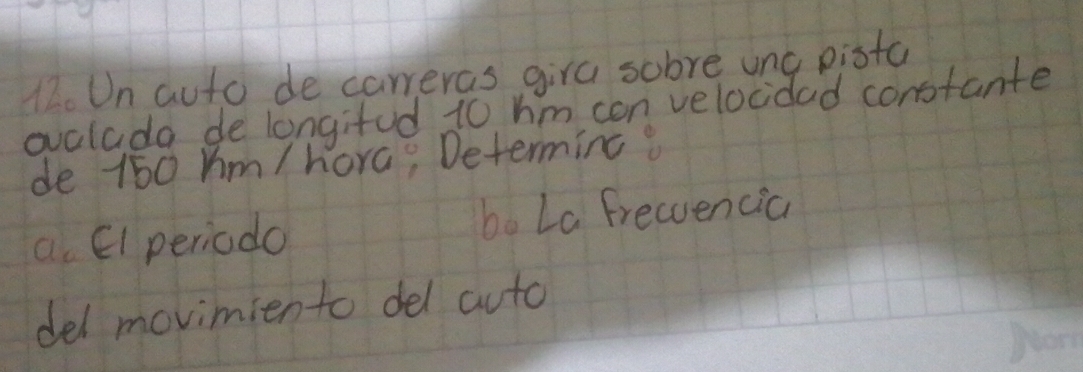 12. Un auto de carreras gira sobre una pista
ovalada de longitud 10 km con velocidad constante
de 150 km/hora; Determina:
a. El periodo b. La frecuencia
del movimiento del auto
Norm